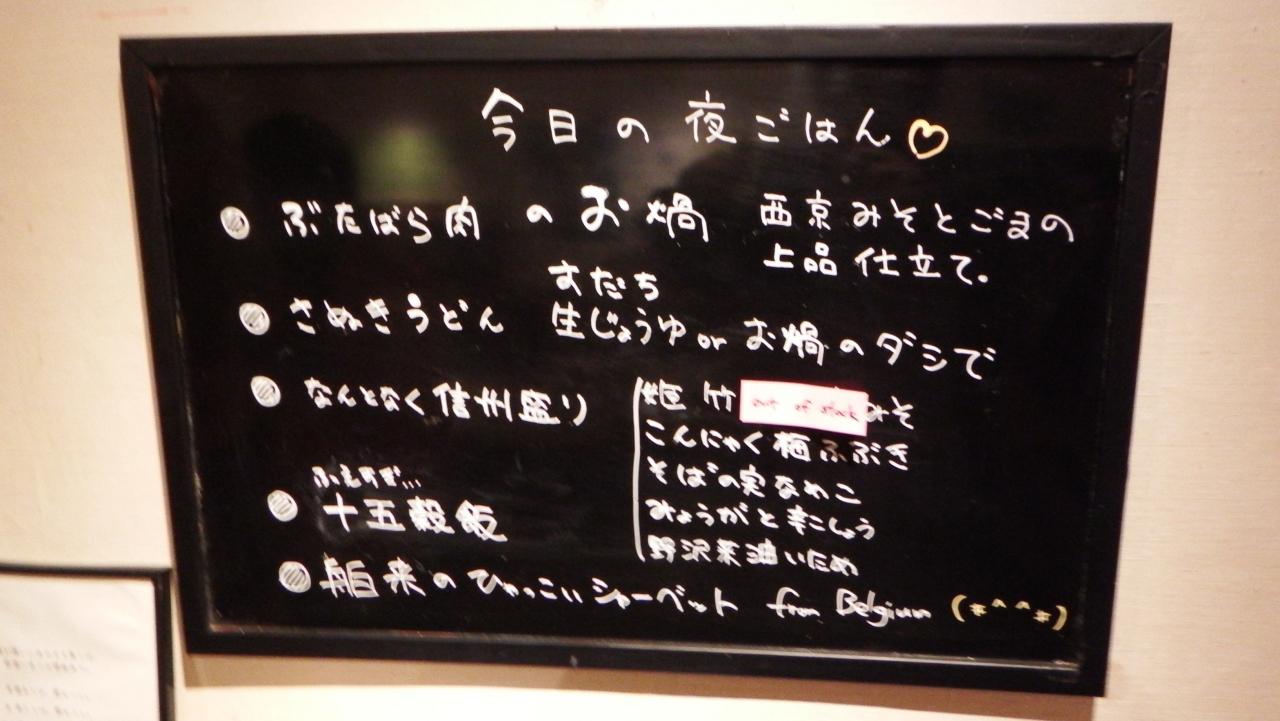 今日の夜ごはん♡
ぶたばら肉のお鍋 西京みそとごまの
上品仕立て。
すだち
さぬきうどん 生じょうゆ or お鍋のダシで
なんとなく信州盛り
姫竹 out of stock みそ
こんにゃく梅ふぶき
そばの実なめこ
みょうがと辛こしょう
野沢菜油いため
ふえすぎ...
十五穀飯
舶来のひゃっこいシャーベット from Belgium (*^^*)